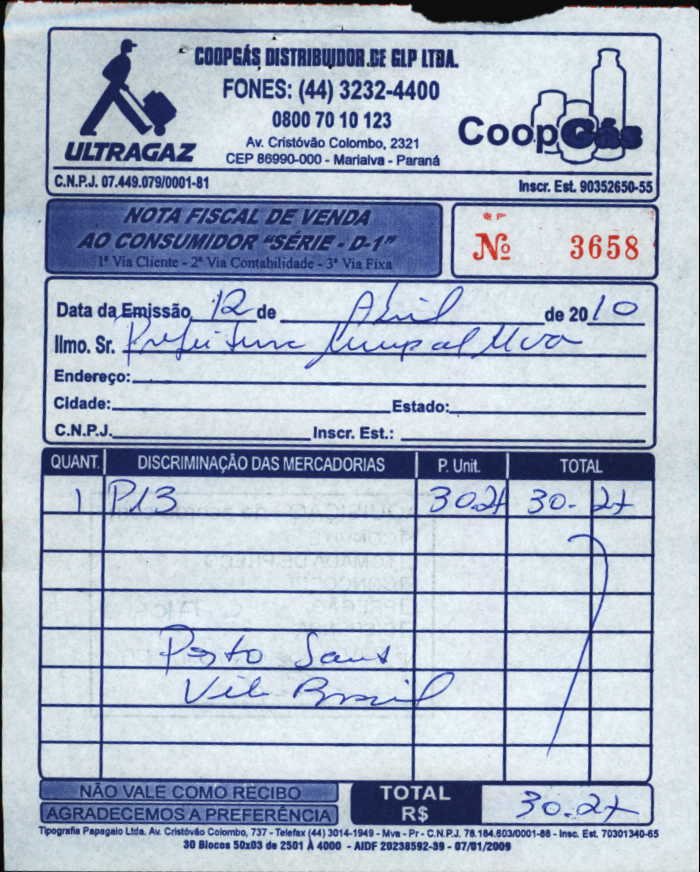 COOPGÁS DISTRIBUIDOR DE GLP LTDA.
FONES: (44) 3232-4400
0800 70 10 123
Av. Cristóvão Colombo, 2321
CEP 86990-000 - Marialva - Paraná
ULTRAGAZ
CoopGás
C.N.P.J. 07.449.079/0001-81
Inscr. Est. 90352650-55
NOTA FISCAL DE VENDA
AO CONSUMIDOR "SÉRIE - D-1"
1ª Via Cliente - 2ª Via Contabilidade - 3ª Via Fixa
Nº 3658
Data da Emissão 12 de Abril de 2010
Ilmo. Sr. Prefeitura Munipal Mva
Endereço:
Cidade: Estado:
C.N.P.J. Inscr. Est.:
QUANT. DISCRIMINAÇÃO DAS MERCADORIAS P. Unit. TOTAL
1 P13 30.27 30.27
Posto Saud
Vila Brasil
NÃO VALE COMO RECIBO
AGRADECEMOS A PREFERÊNCIA
TOTAL R$ 30.27
Tipografia Papagaio Ltda. Av. Cristóvão Colombo, 737 - Telefax (44) 3014-1949 - Mva - Pr - C.N.P.J. 78.184.603/0001-88 - Insc. Est. 70301340-65
30 Blocos 50x03 de 2501 À 4000 - AIDF 20238592-39 - 07/01/2009